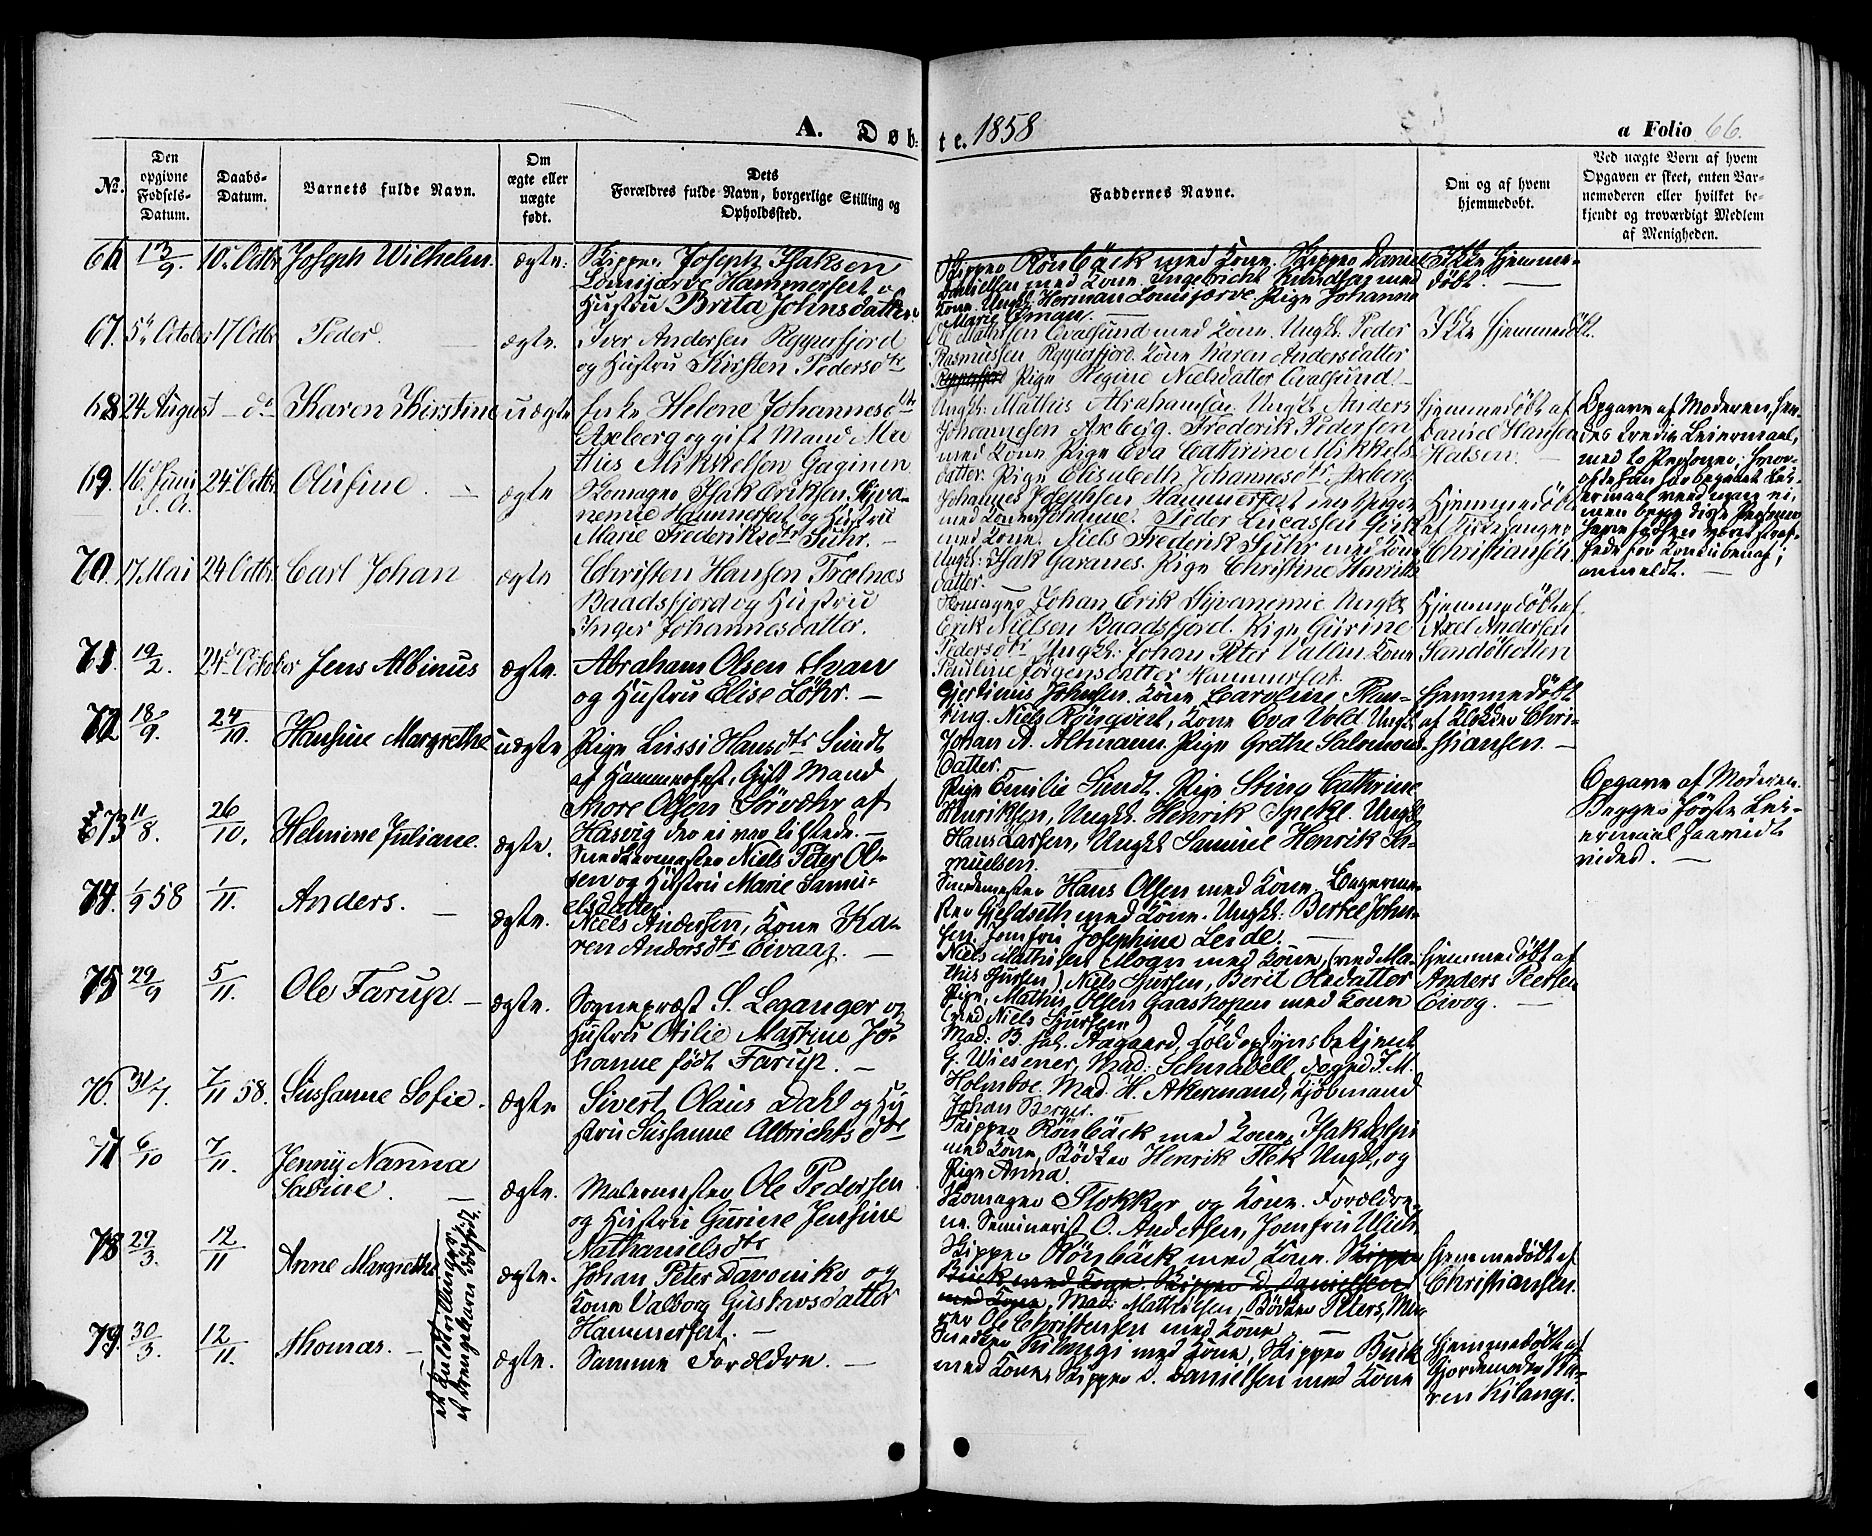 A. Døb:
te. 1858
a Folio 66.
No.
Den opgivne Fødsels-Datum.
Daabs-Datum.
Barnets fulde Navn.
Om ægte eller uægte født.
Dets Forældres fulde Navn, borgerlige Stilling og Opholdssted.
Faddernes Navne.
Om og af hvem hjemmedøbt.
Ved uægte Børn af hvem Opgaven er skeet, enten Barnemoderen eller hvilket bekjendt og troværdigt Medlem af Menigheden.
66 13/9. 10. Octbr Joseph Wilhelm. ægte.
Skipper Joseph Isaksen
Lonisjærve Hammerfest og
Hustru Brita Johnsdatter.
Skipper Rönbäck med Kone. Skipper Daniel
Danielsen med Kone. Ingebricht Knudsen med
Kone. Ungk. Herman Lonisjærve. Pige Johanna
Marie Eman.
Ikke hjemme-
døbt.
67. 5te October 17 Octbr Peder. ægte.
Iver Andersen Repperfjord
og Hustru Kirsten Pedersdtr
Ole Mathisen Qvalsund med Kone. Ungk. Peder
Rasmussen Repperfjord. Kone Karen Andersdatter
Pige Regine Nielsdatter Qvalsund.
Ikke hjemmedøbt.
68 24 August do Karen Kirstine uægte
Enke Helene Johannesdtr
Axeberg og gift Mand Ma
this Mikkelsen Gaginen
Ungk: Mathis Abrahamsen. Ungk. Anders
Johannesen Axberg. Frederik Pedersen
med Kone. Pige Eva Cathrine Mikkels-
datter. Pige Elisabeth Johannesdtr Axberg
Hjemmedøbt af
Daniel Hansen
Opgave af Moderen, hen-
des tredie Leiermaal,
med to Personer;
anmeldt.
69. 16. Juni d. A. 24 Octbr Olufine. ægte
Komager Isak Eriksen Sjøva-
nemie Hammerfest og Hustru
Marie Frederiksdtr Suhr.
Johannes Josephsen Hammerfest
med Kone. Peder Lucassen
med Kone. Niels Frederik Suhr med Kone
Ungk: Isak Garanes. Pige Christine Henriks
datter.
Hjemmedøbt
af Kirkesanger
Christiansen.
70. 17 Mai 24 Octbr Carl Johan ægte
Christen Hansen Trælnæs
Baadsfjord og Hustru
Inger Johannesdatter.
Komager Johan Erik Sjvanemie Ungk
Erik Nielsen Baadsfjord. Pige Gurine
Pedersdtr Ungk: Johan Peter Valin Kone
Pauline Jørgensdatter Hammerfest.
Hjemmedøbt af
Axel Andersen
Sandøbotten
71. 19/2. 24de October Jens Albinus ægte.
Abraham Olsen Svan
og Hustru Elise Løhr.
Gjertinus Johnsen. Kone Caroline Thu-
ring. Niels Rönqvist, Kone Eva Vold. Ungk.
Johan A. Altmann. Pige Grethe Salomons
datter.
Hjemmedøbt
af Klokker Chri-
stiansen.
72 18/9. 24/10. Hansine Margrethe uægte
Pige Lussi Hansdtr Sundt
af Hammerfest. Gift Mand
Thore Olsen Sörvær af
Hasvig der ei var tilstede.
Pige Emilie Sundt. Pige Stine Cathrine
Henriksen, Ungk. Henrik Speke. Ungk.
Hans Larsen, Ungk. Samuel Henrik Sa-
muelsen.
Opgave af Moderen.
Begges første Lei-
ermaal saavidt
vides.
73 11/8. 26/10. Helmine Juliane. ægte.
Snedkermester Niels Peter Ol-
sen og Hustru Marie Samu-
elsdatter
Smedmester Hans Olsen med Kone. Bagerme-
ster Gjeldseth med Kone. Ungk: Bertel John-
sen. Jomfru Josephine Leide.
74. 1/9 58 1/11. Anders. ægte.
Niels Andersen, Kone Ka-
ren Andersdtr Eivaag.
Niels Mathisen Mogn med Kone, (ved Ma-
this Sjursen) Niels Sjursen, Berit Olesdatter
Pige, Mathis Olsen Gaaskopen med Kone
(ved Niels Sjursen)
Hjemmedøbt af
Anders Peersen
Eivog.
75 29/9 5/11. Ole Farup. ægte.
Sognepræst S. Leganger og
Hustru Otilie Martine Jo-
hanne født Farup.
Mad: B. sal. Aagaard, Toldopsynsbetjent
G. Wiesener, Mad: Schnabell, Foged I. M.
Holmboe. Mad. H. Akermand, Kjøbmand
Johan Berger.
76. 31/7. 7/11 58. Susanne Sofie. ægte
Sivert Olaus Dahl og Hu
stru Susanne Albrichtsdtr
Skipper Rönbäck med Kone, Isak
med Kone, Bödker Henrik Flek Ungk, og
Pige Anna.
77 6/10 7/11. Jenny Nanna
Sabine. ægte.
Malermester Ole Pedersen
og Hustru Guriene Jensine
Nathanielsdtr
Komager Stokker og Kone. Forældre-
ne. Seminarist O. Andersen, Jomfru
78 29/3. 12/11 Anne Margrethe ægte.
Johan Peter Davoniko og
Kone Valborg Gustavsdatter
Hammerfest.
Skipper Rönbäck med Kone. Skipper
Buck med Kone. Skipper D. Danielsen
med Kone, Mad: Mathisen, Bödker Peters, Mu-
rer Ole Christensen med Kone
Hjemmedøbt af
Christiansen.
79. 30/3. 12/11. Thomas. ægte.
Samme Forældre.
Snedker Kilangi med Kone, Skipper Buck
med Kone, Skipper D. Danielsen med Kone
Hjemmedøbt af
Gjordemoder Ka-
ren Kilangi.
et Kuld Trillinger,
et Drengebarn dødfødt.